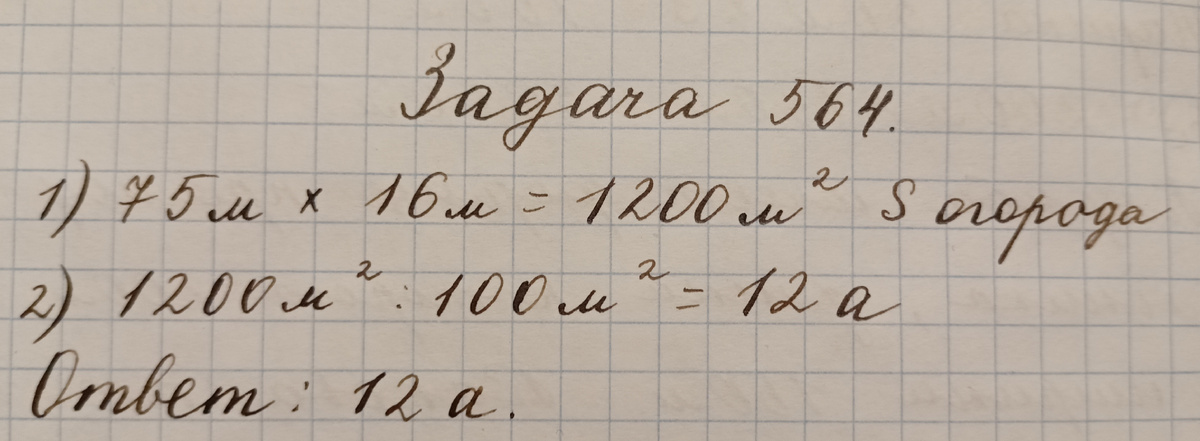 Задача 564.
1) 75м × 16м = 1200м² S огорода
2) 1200м² : 100м² = 12 а
Ответ: 12 а.